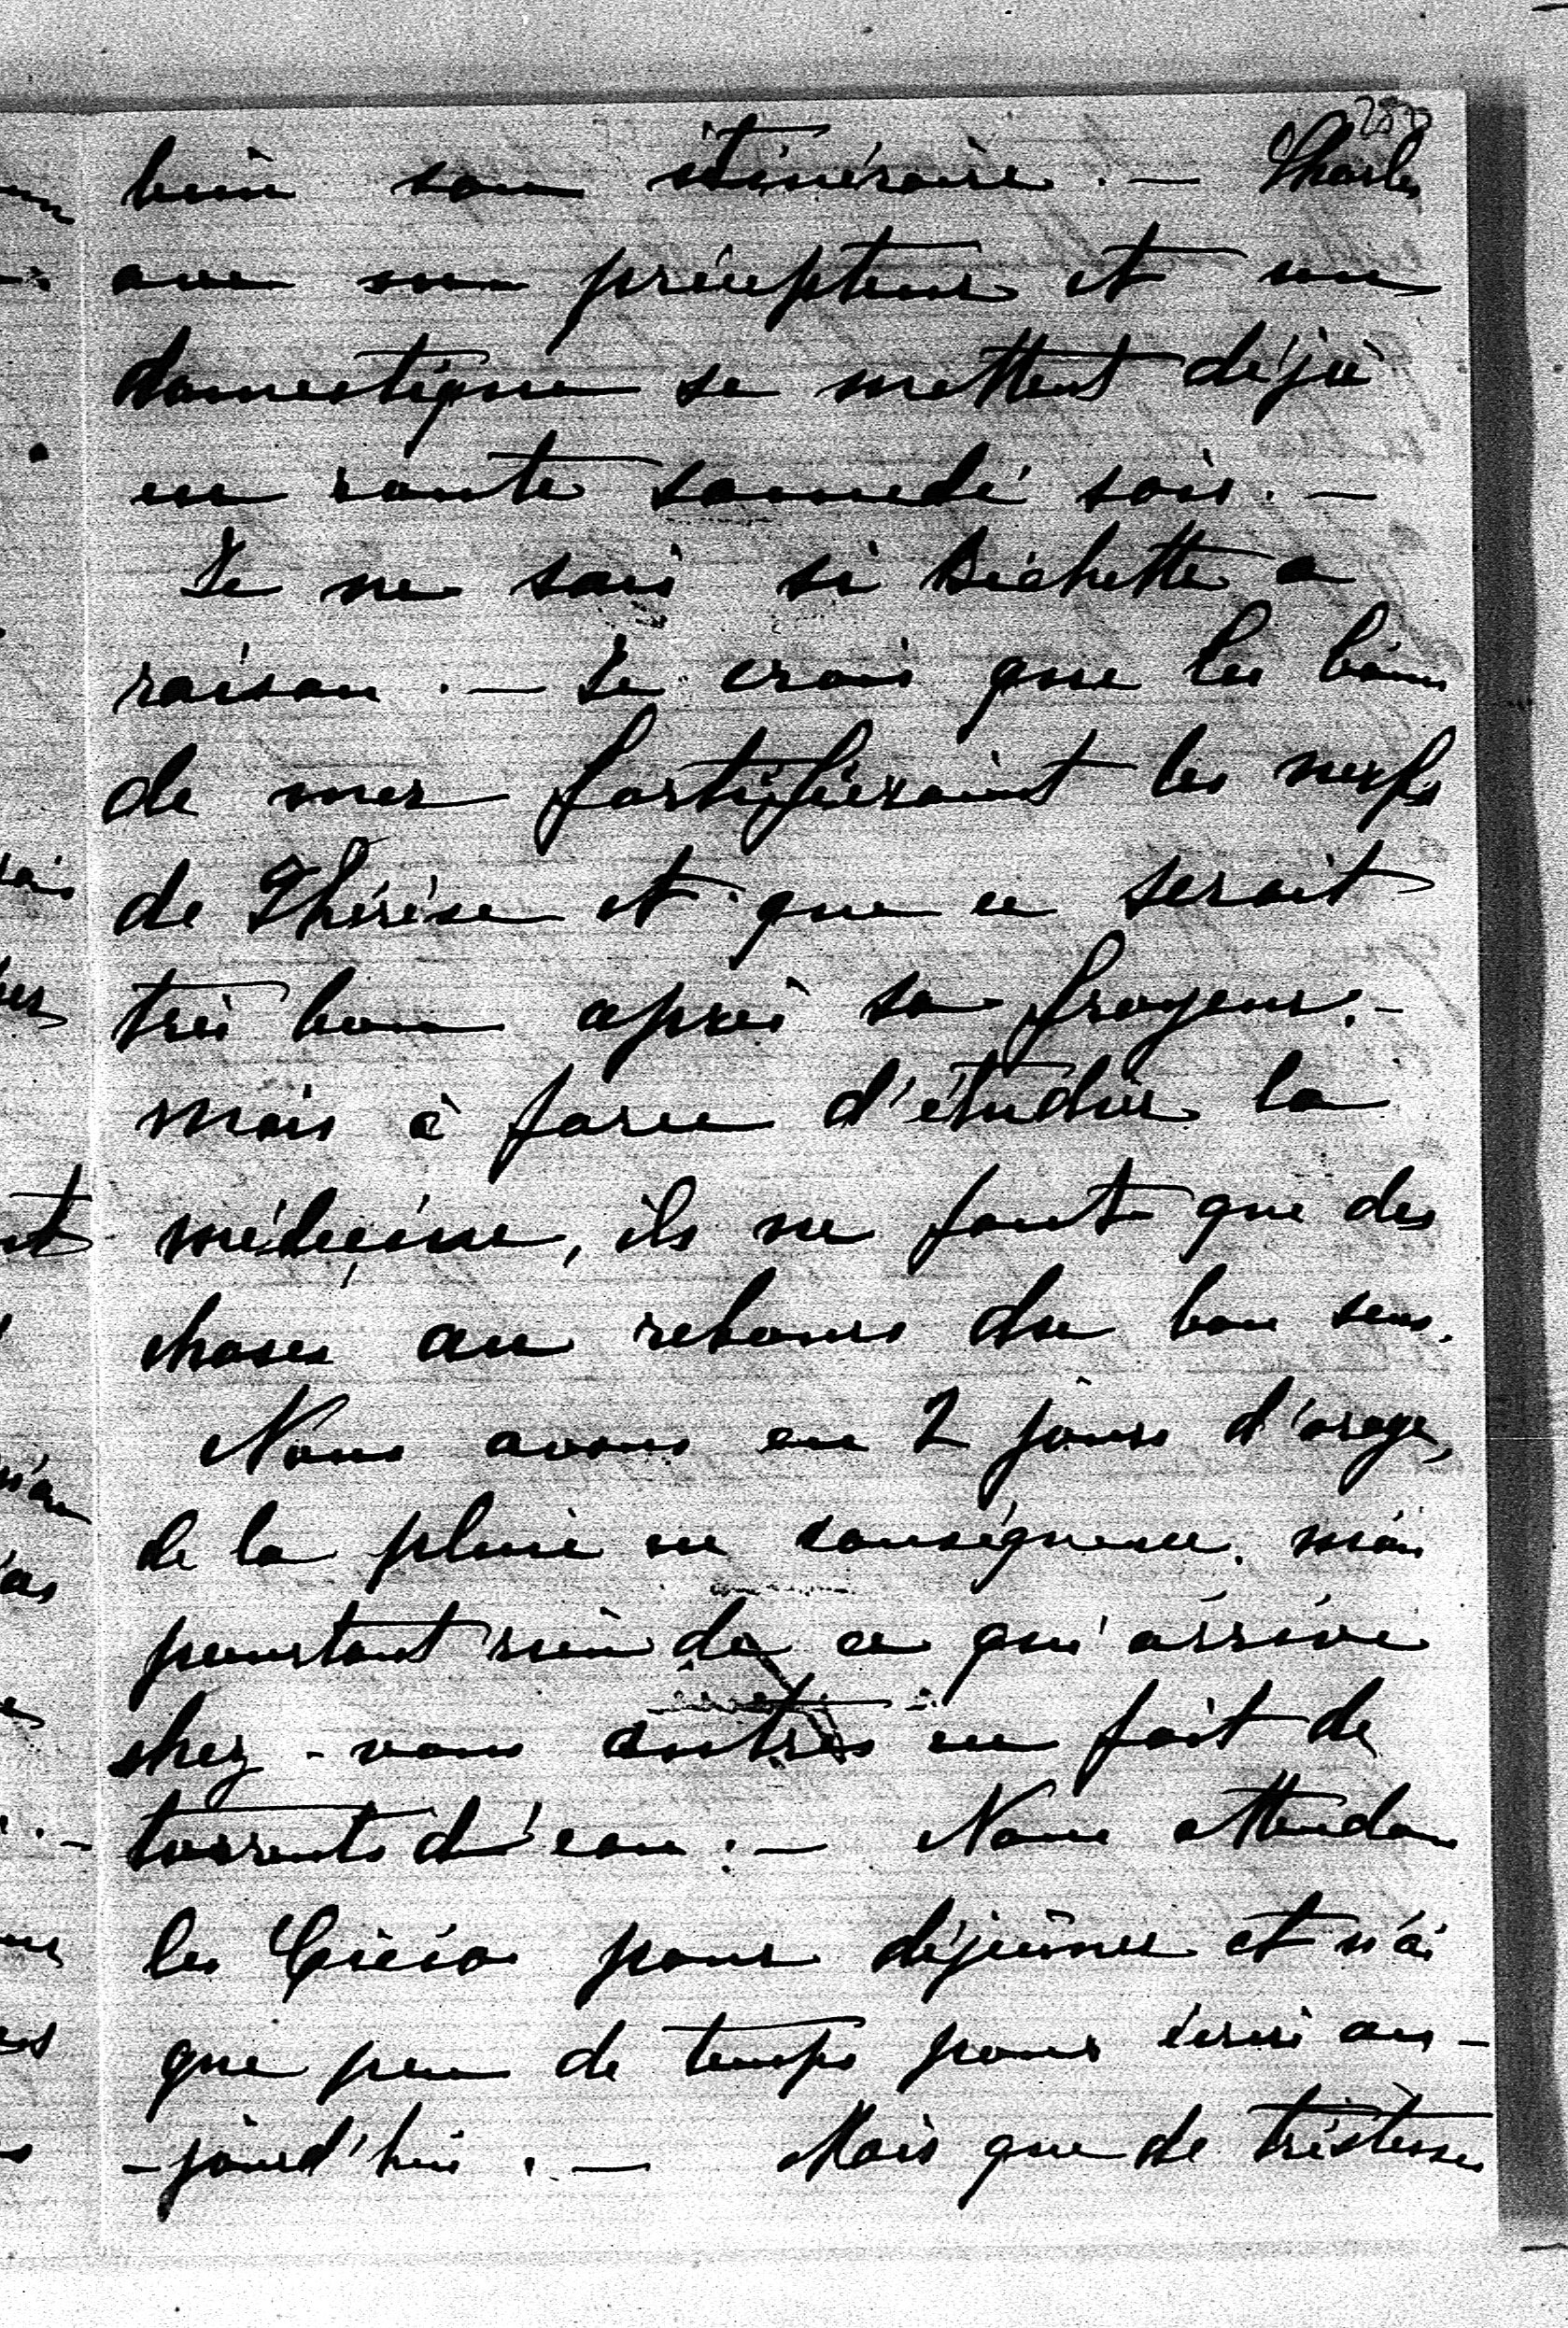 bien son itinéraire. — Charles
avec son précepteur et un
domestique se mettent déjà
en route samedi soir. —
Je ne sais si Bichette a
raison. — Je crois que les bains
de mer fortifieraient les nerfs
de Thérèse et que ce serait
très bon après sa frayeur. —
mais à force d'étudier la
médecine, ils ne font que des
choses au rebours du bon sens.
Nous avons eu 2 jours d'orage,
de la pluie en conséquence. mais
pourtant rien de ce qui arrive
chez-vous autres en fait de
torrents d'eau. — Nous attendons
les pour déjeûner et n'ai
que peu de temps pour écrire au-
-jourd'hui. — Mais que de tristesses